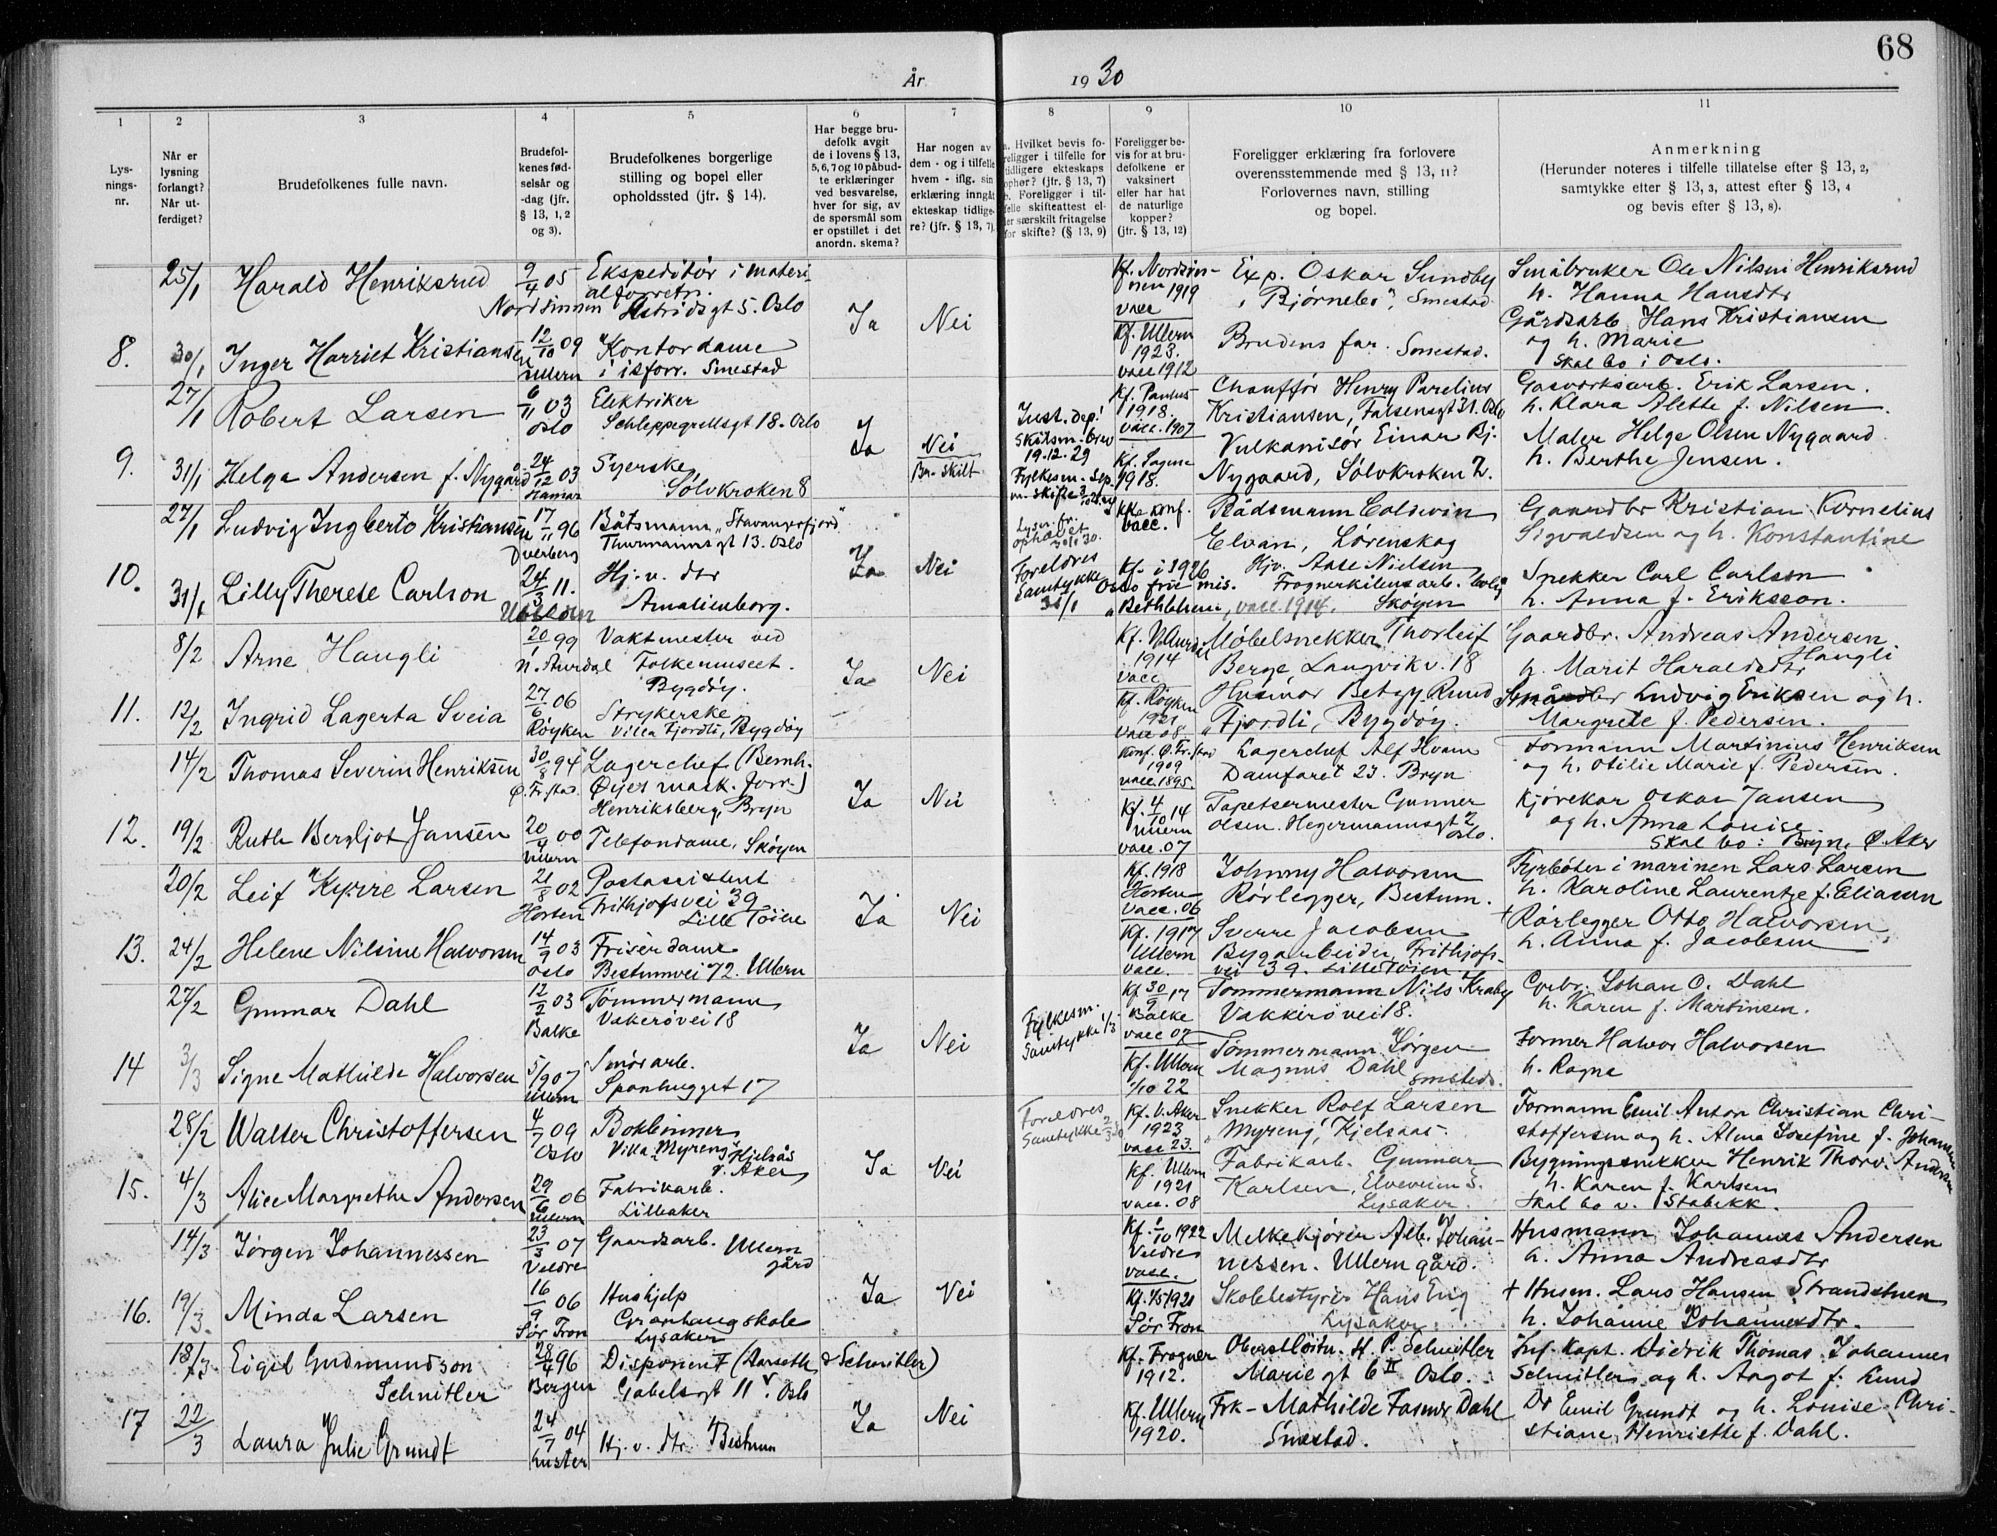 68
År
19 30
1
2
3
4
5
6
7
8
9
10
11
Lys-
nings-
nr.
Når er
lysning
forlangt?
Når ut-
ferdiget?
Brudefolkenes fulle navn.
Brudefol-
kenes fød-
selsår og
-dag (jfr.
§ 13, 1, 2
og 3).
Brudefolkenes borgerlige
stilling og bopel eller
opholdssted (jfr. § 14).
Har begge bru-
defolk avgit
de i lovens § 13,
5, 6, 7 og 10 påbud-
te erklæringer
ved besvarelse,
hver for sig, av
de spørsmål som
er opstillet i det
anordn. skema?
Har nogen av
dem - og i tilfelle
hvem - iflg. sin
erklæring inngåt
ekteskap tidlige-
re? (jfr. § 13, 7).
a. Hvilket bevis fo-
religger i tilfelle for
tidligere ekteskaps
ophør? (jfr. § 13, 7)
b. Foreligger i til-
felle skifteattest el-
ler særskilt fritagelse
for skifte? (§ 13, 9)
Foreligger be-
vis for at bru-
defolkene er
vaksinert
eller har hat
de naturlige
kopper?
(jfr. § 13, 12)
Foreligger erklæring fra forlovere
overensstemmende med § 13, 11?
Forlovernes navn, stilling
og bopel.
Anmerkning
(Herunder noteres i tilfelle tillatelse efter § 13, 2,
samtykke efter § 13, 3, attest efter § 13, 4
og bevis efter § 13, 8).
8.
25/1 Harald Henriksrud
9/4 05
Nordsinnen
Ekspeditør i materi
alforretn.
Astridsgt 5. Oslo
Ja
Nei
Kf. Nordsin-
nen 1919
vacc
Exp. Oskar Sundby
"Bjørnebo", Smestad
Småbruker Ole Nilsen Henriksrud
h. Hanna Hansdtr
30/1 Inger Harriet Kristiansen
12/10 09
Ullern
Kontordame
i isforr. Smestad
Kf. Ullern
1923.
vacc 1912
Brudens far. Smestad.
Gårdsarb. Hans Kristiansen
og h. Marie
Skal bo i Oslo.
9.
27/1 Robert Larsen
6/11 03
Oslo
Elektriker
Schleppegrellsgt 18. Oslo
Ja
Nei
Br. skilt
Just. dep!
Skilsm. brev
19.12.29
Kf. Paulus
1918.
vacc. 1907
Chauffør Henry Parelius
Kristiansen, Falsensgt 31. Oslo
Gasverksarb. Erik Larsen.
h. Klara Alette f. Nilsen.
31/1 Helga Andersen f. Nygård
24/12 03
Hamar
Syerske
Sølvkroken 8
Kf. Sagene
1918.
Vulkanisør Einar Bj.
Nygaard, Sølvkroken 2.
Maler Helge Olsen Nygaard
h. Berthe Jensen.
10.
27/1 Ludvig Ingberto Kristiansen
17/11 96
Dverberg
Båtsmann "Stavangerfjord"
Thurmannsgt 13. Oslo
Ja
Nei
Lysn. fr.
ophævet
konf.
vacc.
Rådsmann
Elvan, Lørenskog
Gaardbr Kristian Kornelius
Sigvaldsen og h. Konstantine
31/1 Lilly Therese Carlson
24/3 11.
Hj. v. dtr
Amalienborg.
Foreldres
Samtykke
31/1
Kf. i 1926
Oslo frie mis.
"Bethlehem, vacc. 1914.
Hjv. Aase Nielsen
Frognerkilens arb. bolig
Skøyen
Snekker Carl Carlson
h. Anna f. Eriksson.
11.
8/2 Arne Haugli
20/1 99
N. Aurdal
Vaktmester ved
Folkemuseet.
Bygdøy.
Ja
Nei
Kf. N. Aurdal
1914
vacc
Møbelsnekker Thorleif
Berge Langvikv. 18
Gaardbr. Andreas Andersen
Haugli
h. Marit Haraldsdtr
12/2 Ingrid Lagerta Sveia
27/6 06
Røyken
Strykerske
Villa Fjordli, Bygdøy
Kf. Røyken
1921
vacc 08
Husmor Betzy Rund
"Fjordli, Bygdøy.
Ludvig Eriksen og h.
Margrete f. Pedersen.
12.
14/2 Thomas Severin Henriksen
30/8 94
Ø. Fr.stad
Lagerchef (Bernh.
Øyes mask. forr.)
Henriksberg, Bryn
Ja
Nei
Konf. Ø. Fr.stad
1909
vacc 1895.
Lagerchef Alf Hvam
Damfaret 23. Bryn
Formann Martinius Henriksen
og h. Otilie Marie f. Pedersen.
19/2 Ruth Bergljot Jansen
20/4 00
Ullern
Telefondame, Skøyen
Kf. 4/10 14
Ullern
vacc. 07
Tapetsermester Gunnar
Olsen. Hegermannsgt 2
Oslo.
Kjørekar Oskar Jansen
og h. Anna Louise
Skal bo: Bryn, Ø. Aker
13.
20/2 Leif Kyrre Larsen
21/8 02
Horten
Postassistent
Frithjofsvei 39
Lille Tøien
Ja
Nei
Kf. 1918
Horten
vacc. 06
Johnny Halvorsen
Rørlegger, Bestum.
Fyrbøter i marinen Lars Larsen
h. Karoline Laurentze f. Eliasen
24/2 Helene Nilsine Halvorsen
14/9 03
Oslo
Frisérdame
Bestumvei 72. Ullern
Kf. 1917
Ullern
vacc.
Sverre Jacobsen
Bygarbeider, Frithjofs-
vei 39. Lille Tøien
+ Rørlegger Otto Halvorsen
h. Anna f. Jacobsen
14
27/2 Gunnar Dahl
12/2 03
Balke
Tømmermann
Vakerøvei 18
Ja
Nei
Fylkesm.
Samtykke 1/3
Kf 30/9 17
Balke
vacc 07
Tømmermann Nils Kraby
Vakkerøvei 18.
Johan O. Dahl
h. Karen f. Martinsen.
3/3 Signe Mathilde Halvorsen
5/9 07
Ullern
Smørarb.
Sponhugget 17
Kf. Ullern
1/10 22
Tømmermann Jørgen
Magnus Dahl
smsteds.
Former Halvor Halvorsen
h. Ragna
15.
28/2 Walter Christoffersen
4/7 09
Oslo
Bokbinner
Villa "Myreng" Kjelsås
V. Aker
Ja
Nei
Foreldres
Samtykke
Kf. V. Aker
1923
vacc 23.
Snekker Rolf Larsen
"Myreng", Kjelsaas.
Formann Emil Anton Christian Chri-
stoffersen og h. Alma Josefine f. Johansen
4/3 Alice Margrethe Andersen
29/6 06
Ullern
Fabrikarb.
Lilleaker
Kf. Ullern
1921
vacc. 08
Fabrikarb. Gunnar
Karlsen, Elveveien 5.
Lysaker.
Bygningssnekker Henrik Thorv. Andersen
h. Karen f. Karlsen
Skal bo v. Stabekk.
16.
14/3 Jørgen Johannessen
23/3 07
Veldre
Gaardsarb. Ullern
gård
Ja
Nei
Kf. 1/10 1922
Veldre
vacc.
Melkekjører Alb. Johan-
nessen. Ullern gård.
Husmann Johannes Andersen
h. Anna Andreasdtr
19/3. Minda Larsen
16/9 06
Sør Fron
Hushjelp
Granhaug skole
Lysaker
Kf. 1/5 1921
Sør Fron
Skolebestyrer Hans Eng
Lysaker.
+ Husm. Lars Hansen Strandstuen
h. Johanne Johannesdtr.
17
18/3. Eigil Gudmundson
Schnitler
28/4 96
Bergen
Disponent (Aarseth & Schnitler)
Gabelsgt 11 V. Oslo
Ja
Nei
Kf. Frogner
1912.
Oberstløitn. H. P. Schnitler
Marie gt 6 II Oslo.
Inf. Kapt. Didrik Thomas Johannes
Schnitler og h. Aagot f. Lund
22/3 Laura Julie Grundt
24/7 04
Luster
Hj. v. dtr. Bestum
Kf. Ullern
1920.
Frk. Mathilde Fasmer Dahl
Smestad.
Dr Emil Grundt og h. Louise Chri-
stiane Henriette f. Dahl.